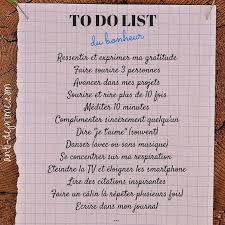 TO DO LIST
du bonheur
Ressentir et exprimer ma gratitude
Faire sourire 3 personnes
Avancer dans mes projets
Sourire et rire plus de 10 fois
Méditer 10 minutes
Complimenter sincèrement quelqu'un
Dire "je t'aime" (souvent)
Danser (avec ou sans musique)
Se concentrer sur ma respiration
Eteindre la TV et éloigner les smartphone
Lire des citations inspirantes
Faire un câlin (à répéter plusieurs fois)
Ecrire dans mon journal
...
anti-deprime.com